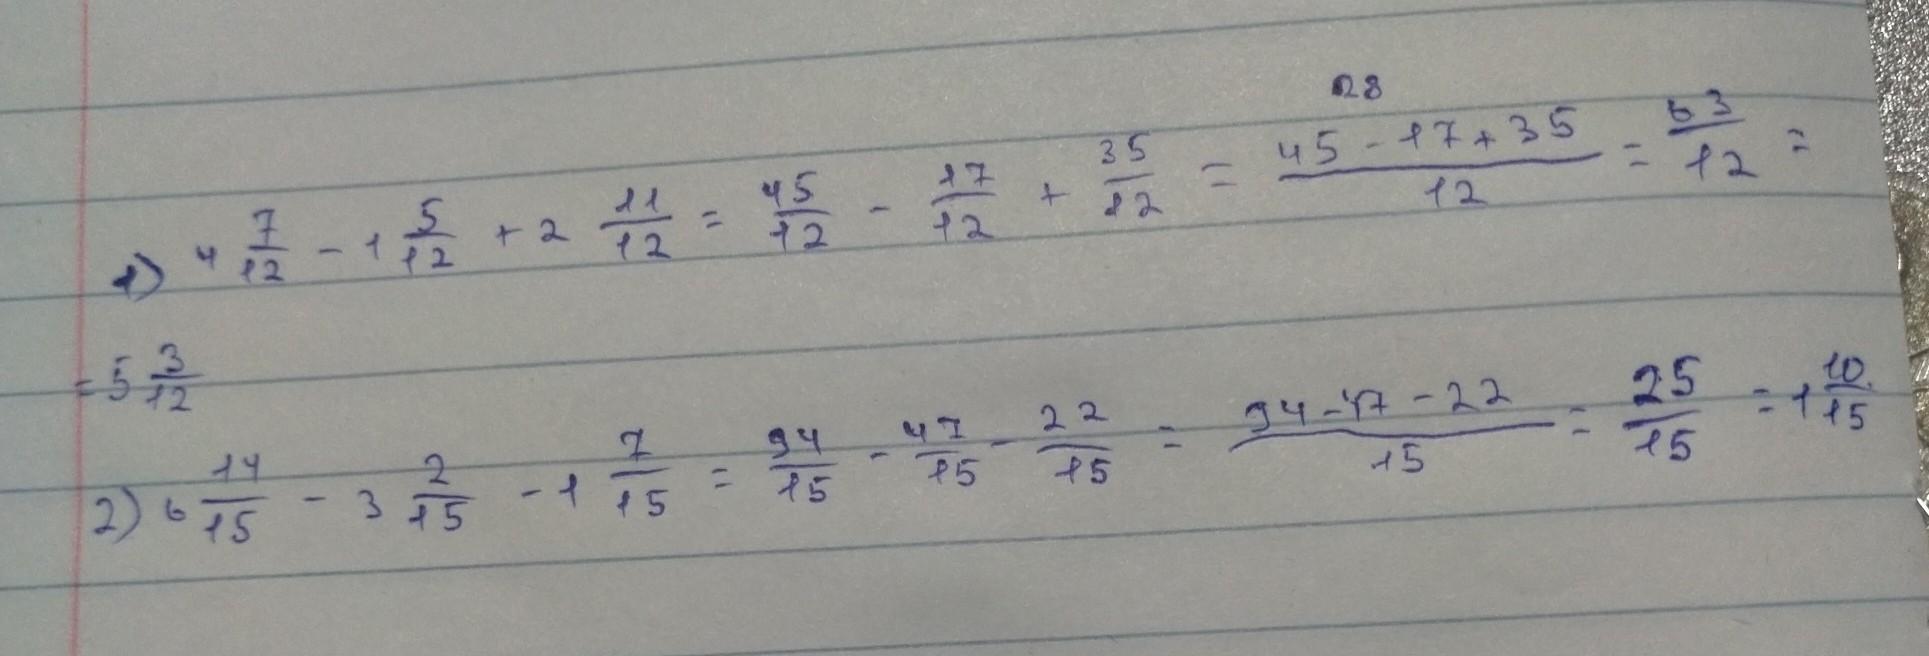 28
1) 4 7/12 - 1 5/12 + 2 11/12 = 45/12 - 17/12 + 35/12 = (45 - 17 + 35)/12 = 63/12 =
= 5 3/12
2) 6 14/15 - 3 2/15 - 1 7/15 = 94/15 - 47/15 - 22/15 = (94 - 47 - 22)/15 = 25/15 = 1 10/15